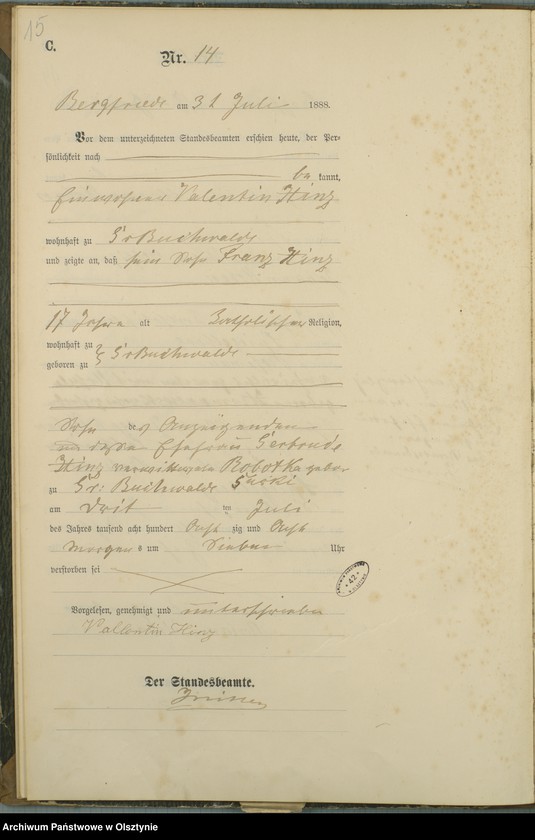 15
C.
Nr. 14
Bergfriede am 31 Juli 1888.
Vor dem unterzeichneten Standesbeamten erschien heute, der Per-
sönlichkeit nach
be kannt,
Einwohner Valentin Hinz
wohnhaft zu Gr Buchwalde
und zeigte an, daß sein Sohn Franz Hinz
17 Jahre alt Katholischer Religion,
wohnhaft zu
geboren zu } Gr Buchwalde
Sohn des Anzeigenden
und dessen Ehefrau Gertrude
Hinz verwittwete Robotka gebor
zu Gr: Buchwalde
am im Juli
des Jahres tausend acht hundert Acht zig und Acht
Morgens um Sieben Uhr
verstorben sei
42
Vorgelesen, genehmigt und unterschrieben
Vallentin Hinz
Der Standesbeamte.
Archiwum Państwowe w Olsztynie